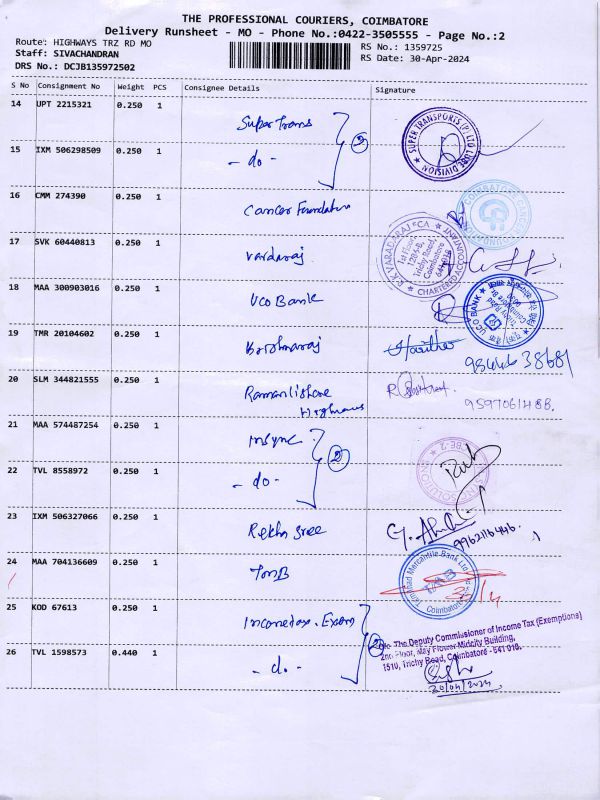 THE PROFESSIONAL COURIERS, COIMBATORE
Delivery Runsheet - MO - Phone No.:0422-3505555 - Page No.:2
Route: HIGHWAYS TRZ RD MO
RS No.: 1359725
Staff: SIVACHANDRAN
RS Date: 30-Apr-2024
DRS No.: DCJB135972502
S No Consignment No Weight PCS Consignee Details Signature
14 UPT 2215321 0.250 1 Super Trans
SUPER TRANSPORTS (P) LTD DIVISION
15 IXM 506298509 0.250 1 - do -
16 CMM 274390 0.250 1 Cancer Foundation
COIMBATORE CANCER FOUNDATION
17 SVK 60440813 0.250 1 Vardaraj
CHARTERED ACCOUNTANT
1st Floor
Trichy Road,
Coimbatore
18 MAA 300903016 0.250 1 UCO Bank
UCO BANK
Trichy Road
19 TMR 20104602 0.250 1 Krishnaraj
20 SLM 344821555 0.250 1
21 MAA 574487254 0.250 1 Insync
2
22 TVL 8558972 0.250 1 - do -
23 IXM 506327066 0.250 1 Rekha Sree
9962116446
24 MAA 704136609 0.250 1 TMB
Tamilnad Mercantile Bank Ltd
Coimbatore
25 KOD 67613 0.250 1 Incometax. Exem
2
26 TVL 1598573 0.440 1 - do -
The Deputy Commissioner of Income Tax (Exemptions)
2nd Floor, May Flower Midcity Building,
1510, Trichy Road, Coimbatore - 641 018.